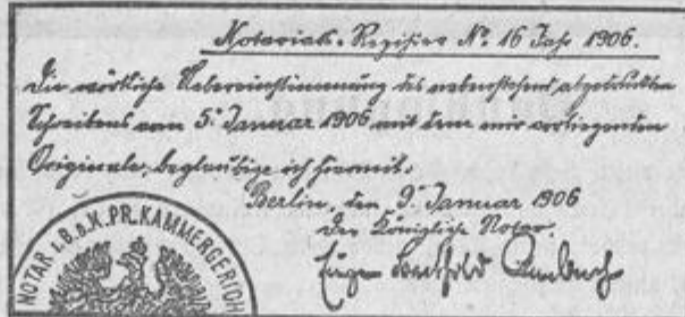 Notariats-Register No. 16 Jahr 1906.
Die wörtliche Uebereinstimmung des nebenstehend abgedruckten
Schreibens vom 5. Januar 1906 mit dem mir vorliegenden
Originale, beglaubige ich hiermit.
Berlin, den 9. Januar 1906
Der Königliche Notar.
Eugen
NOTAR I. B. D. K. PR. KAMMERGERICH